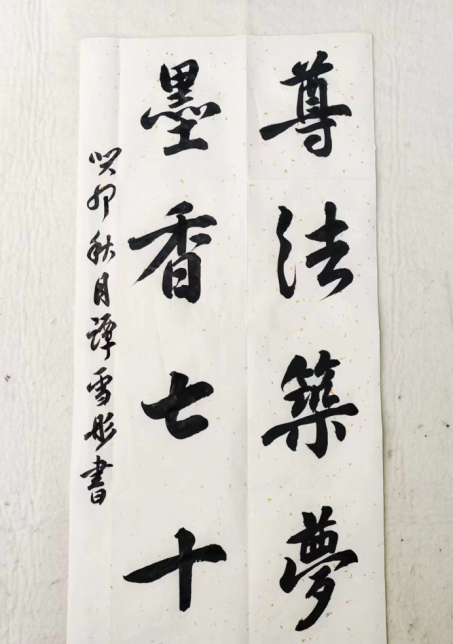 尊法築夢
墨香七十
癸卯秋月譚雪彤書